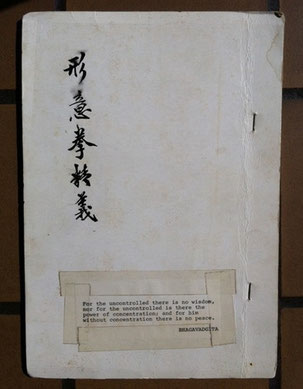 形意拳精義
For the uncontrolled there is no wisdom,
nor for the uncontrolled is there the
power of concentration; and for him
without concentration there is no peace.
BHAGAVADGITA